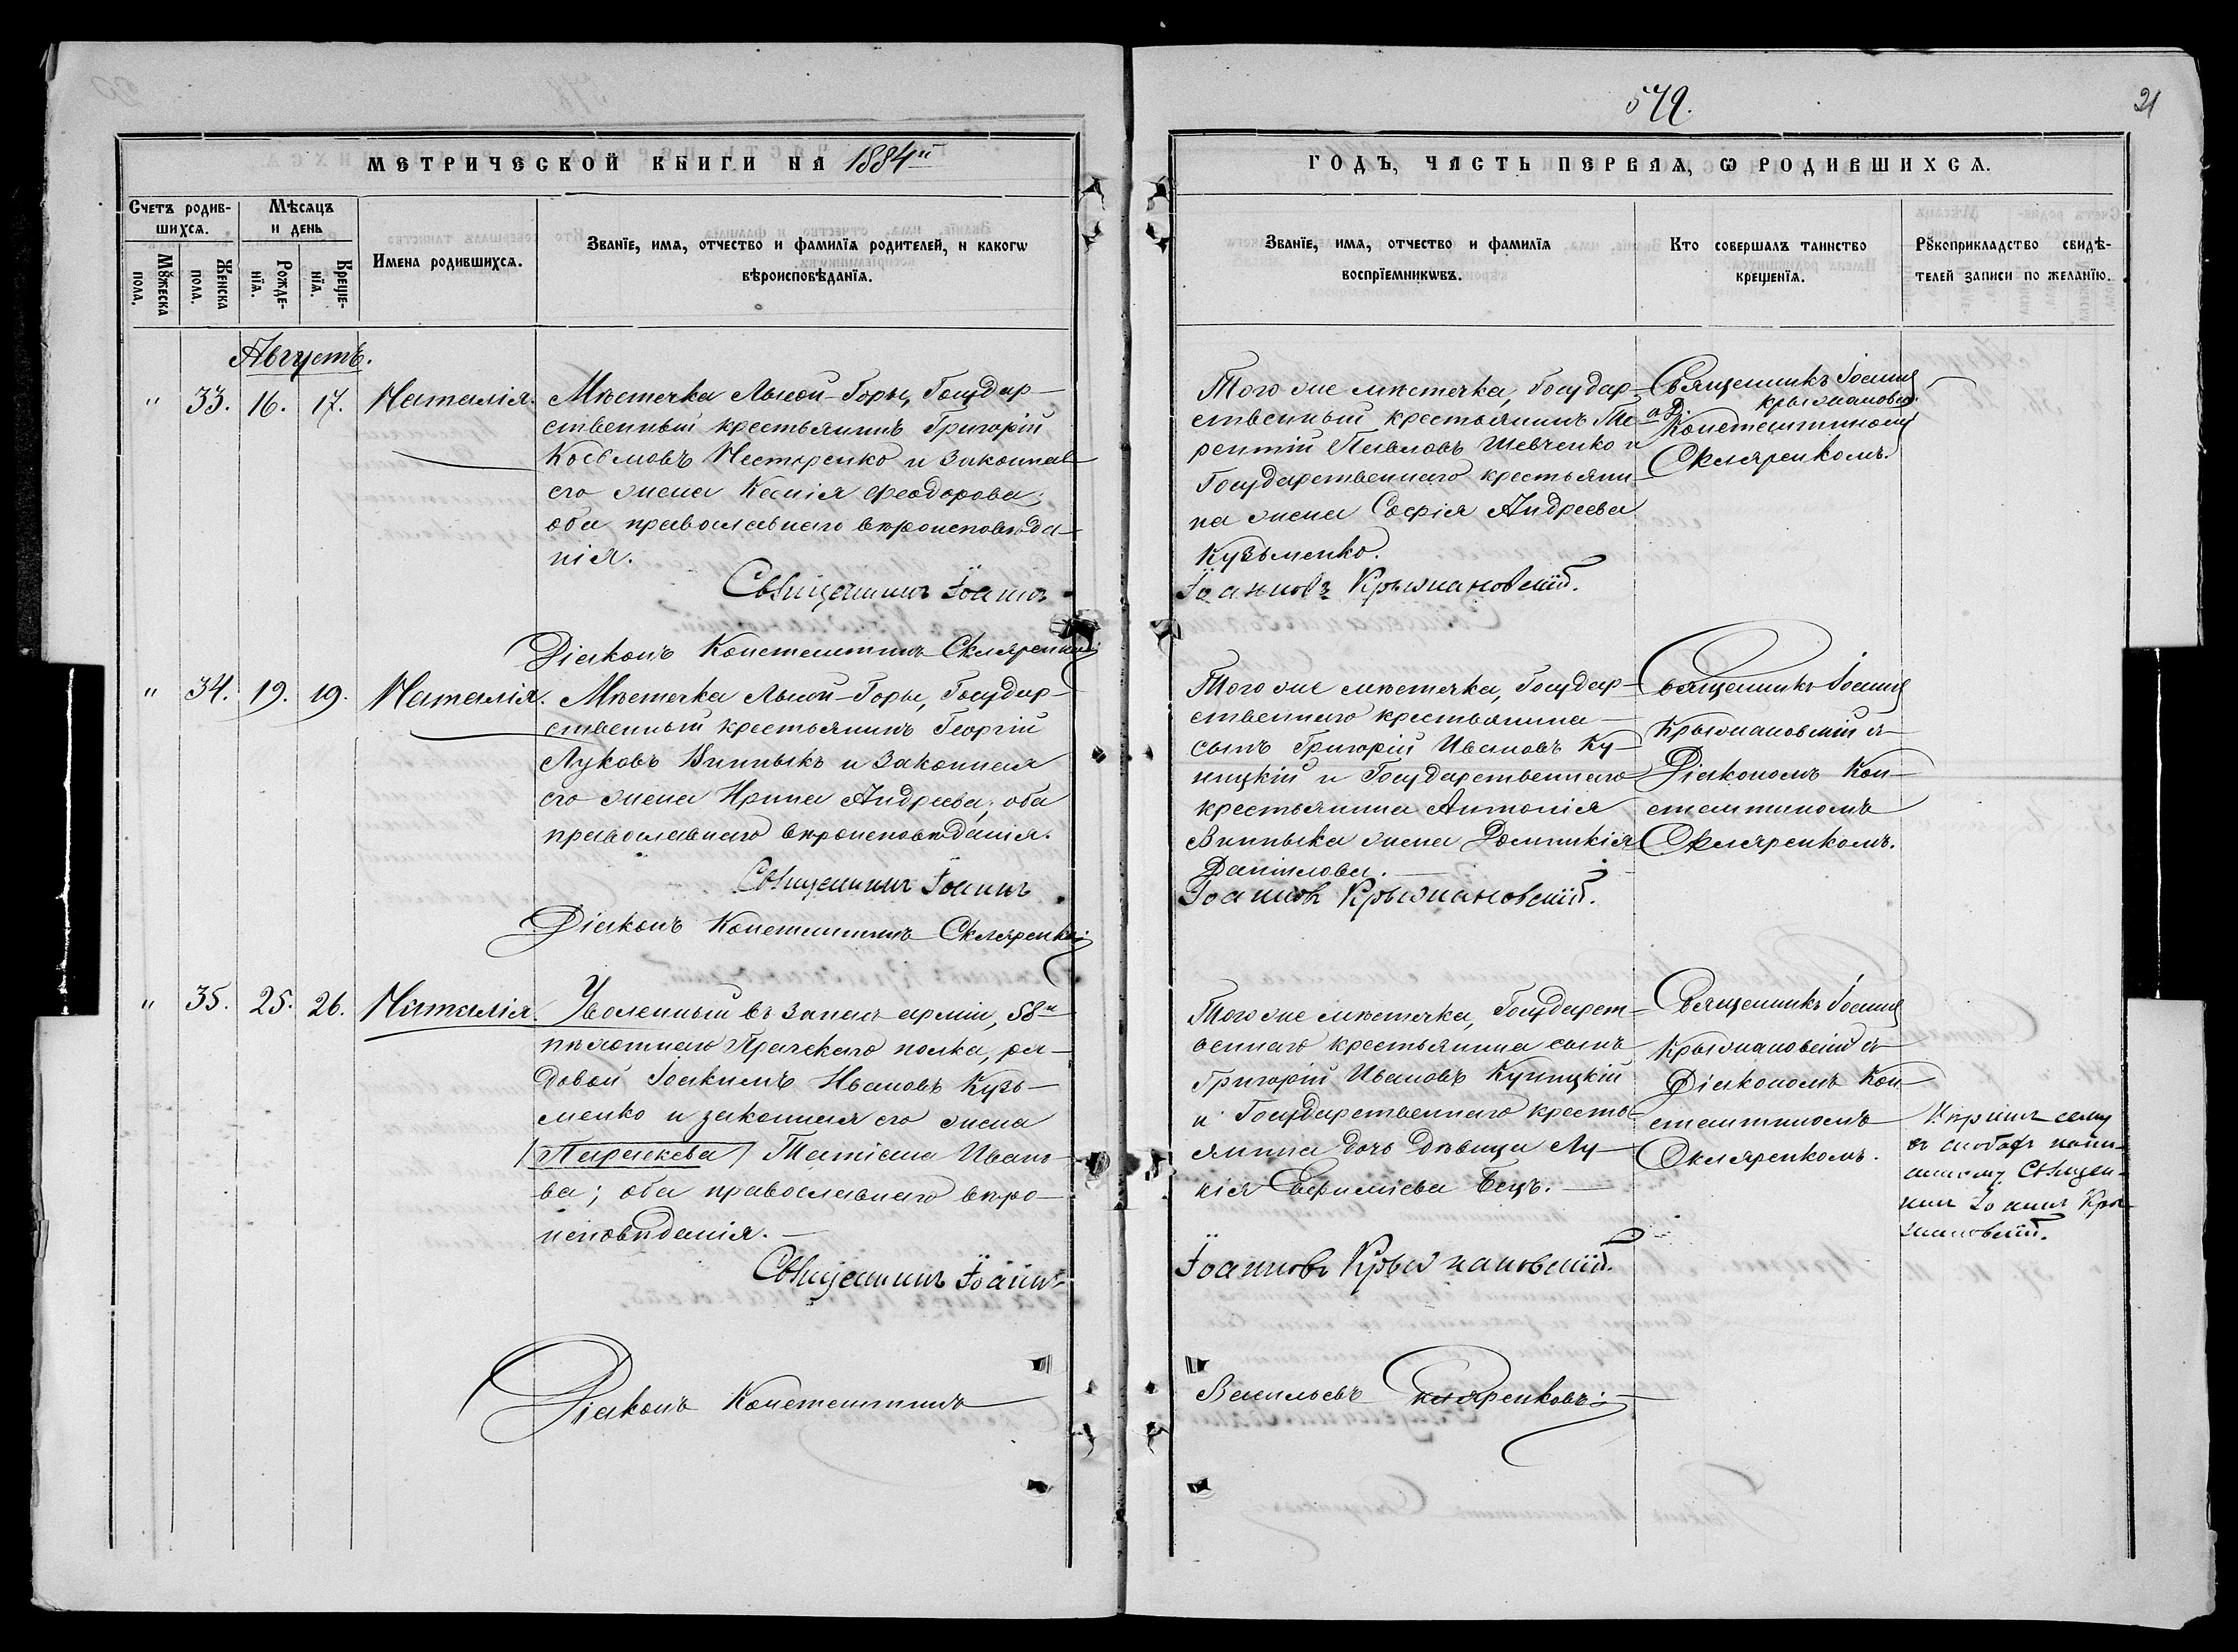 579.
21
МЕТРИЧЕСКОЙ КНИГИ НА 1884й
ГОДЪ, ЧАСТЬ ПЕРВАЯ, Ѡ РОДИВШИХСЯ.
Счетъ родив-
шихся.
Мѣсяцъ
и день
Мꙋжеска
пола.
Женска
пола.
Рожде-
нїя.
Креще-
нїя.
Имена родившихся.
Званїе, имя, отчество и фамилїя родителей, и какогѡ
вѣроисповѣданїя.
Званїе, имя, отчество и фамилїя
воспрїемникѡвъ.
Кто совершалъ таинство
крещенїя.
Рꙋкоприкладство свидѣ-
телей записи по желанїю.
Августъ.
" 33. 16. 17. Наталія.
Мѣстечка Лысой-Горы, Государ-
ственный крестьянинъ Григорій
Косьмовъ Нестеренко и законная
его жена Ксенія Феодорова;
оба православнаго вѣроисповѣда-
нія.
Священникъ Іоаннъ
Діаконъ Константинъ Скляренко
Того же мѣстечка, Государ-
ственный крестьянинъ Те-
рентій Павловъ Шевченко и
Государственнаго крестьяни-
на жена Софія Андреева
Кузьменко.
Іоанновъ Крыжановскій.
Священникъ Іоаннъ
Крыжановскій
Константиномъ
Скляренкомъ.
" 34. 19. 19. Наталія.
Мѣстечка Лысой-Горы, Государ-
ственный крестьянинъ Георгій
Луковъ Винныкъ и законная
его жена Ирина Андреева; оба
православнаго вѣроисповѣданія.
Священникъ Іоаннъ
Діаконъ Константинъ Скляренко
Того же мѣстечка, Государ-
ственнаго крестьянина
сынъ Григорій Ивановъ Ку-
ницкій и Государственнаго
крестьянина Антонія
Винныка жена Домникія
Даніилова.
Іоанновъ Крыжановскій.
Священникъ Іоаннъ
Крыжановскій съ
Діакономъ Кон-
стантиномъ
Скляренкомъ.
" 35. 25. 26. Наталія.
Уволенный въ запасъ арміи, 58й
пѣхотнаго Пражскаго полка, ря-
довой Іоакимъ Ивановъ Кузь-
менко и законная его жена
/Параскева/ Татіана Ивано-
ва; оба православнаго вѣро-
исповѣданія.
Священникъ Іоаннъ
Діаконъ Константинъ
Того же мѣстечка, Государст-
веннаго крестьянина сынъ
Григорій Ивановъ Куницкій
и Государственнаго кресть-
янина дочь дѣвица Лу-
кія Евфиміева Бецъ.
Іоанновъ Крыжановскій.
Васильевъ Скляренковъ.
Священникъ Іоаннъ
Крыжановскій съ
Діакономъ Кон-
стантиномъ
Скляренкомъ.
сему
въ скобахъ напи-
санному Священ-
никъ Іоаннъ Кры-
жановскій.